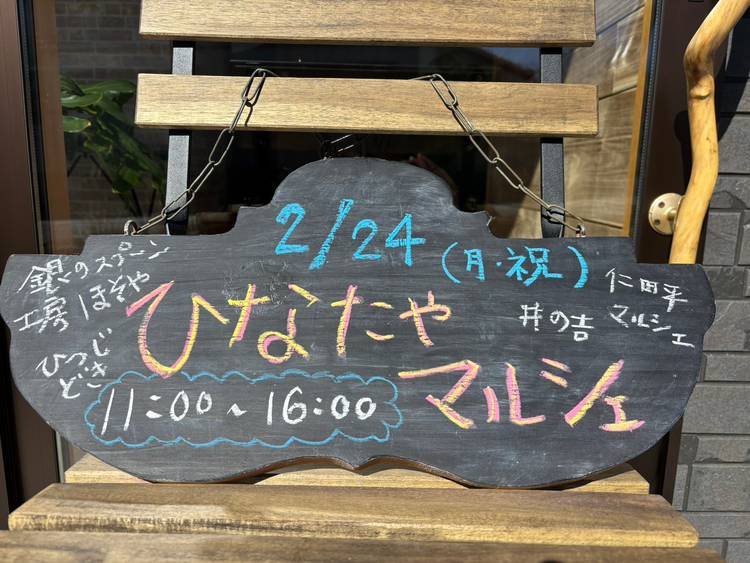 2/24(月・祝)
ひなたや
マルシェ
11:00~16:00
銀のスプーン
工房 ほそや
ひつじ
どき
井の吉
仁田平
マルシェ